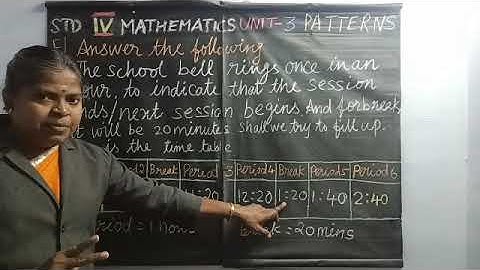 STD IV MATHEMATICS UNIT-3 PATTERNS
E) Answer the following
The school bell rings once in an
our, to indicate that the session
nds/next session begins. And for break
it will be 20 minutes shall we try to fill up.
is the time table
2 Break Period 3 Period 4 Break Period 5 Period 6
:20 12:20 1:20 1:40 2:40
eriod = 1 hou
= 20 mins